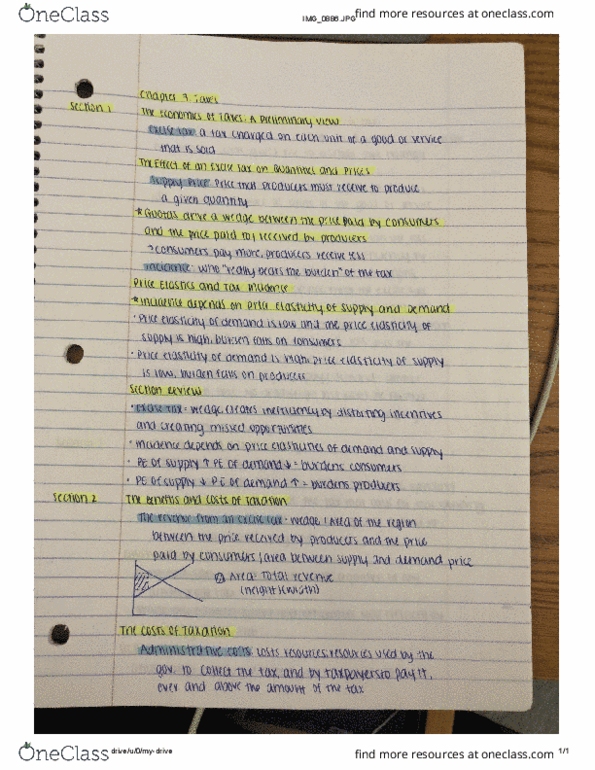 OneClass
IMG_0886.JPG
find more resources at oneclass.com
Chapter 7 Taxes
Section 1
The Economics of Taxes: A Preliminary View
excise tax: a tax charged on each unit of a good or service
that is sold
The Effect of an Excise Tax on Quantities and Prices
Supply Price: Price that producers must receive to produce
a given quantity
*Quotas drive a wedge between the price paid by consumers
and the price paid to/received by producers
→consumers pay more, producers receive less
incidence: who "really bears the burden" of the tax
Price Elastics and Tax Incidence
*Incidence depends on price elasticity of supply and demand
· Price elasticity of demand is low and the price elasticity of
supply is high, burden falls on consumers
· Price elasticity of demand is high, price elasticity of supply
is low, burden falls on producers
Section Review
· excise tax- wedge, creates inefficiency by distorting incentives
and creating missed opportunities
· incidence depends on price elasticities of demand and supply
· PE of supply ↑ PE of demand ↓ = burdens consumers
· PE of supply ↓ PE of demand ↑ = burdens producers
Section 2
The Benefits and Costs of Taxation
The revenue from an excise tax- wedge / Area of the region
between the price received by producers and the price
paid by consumers/area between supply and demand price
Area: Total revenue
(height)(width)
The Costs of Taxation
Administrative costs: costs resources, resources used by the
gov. to collect the tax, and by taxpayers to pay it,
over and above the amount of the tax
OneClass
drive/u/0/my-drive
find more resources at oneclass.com
1/1